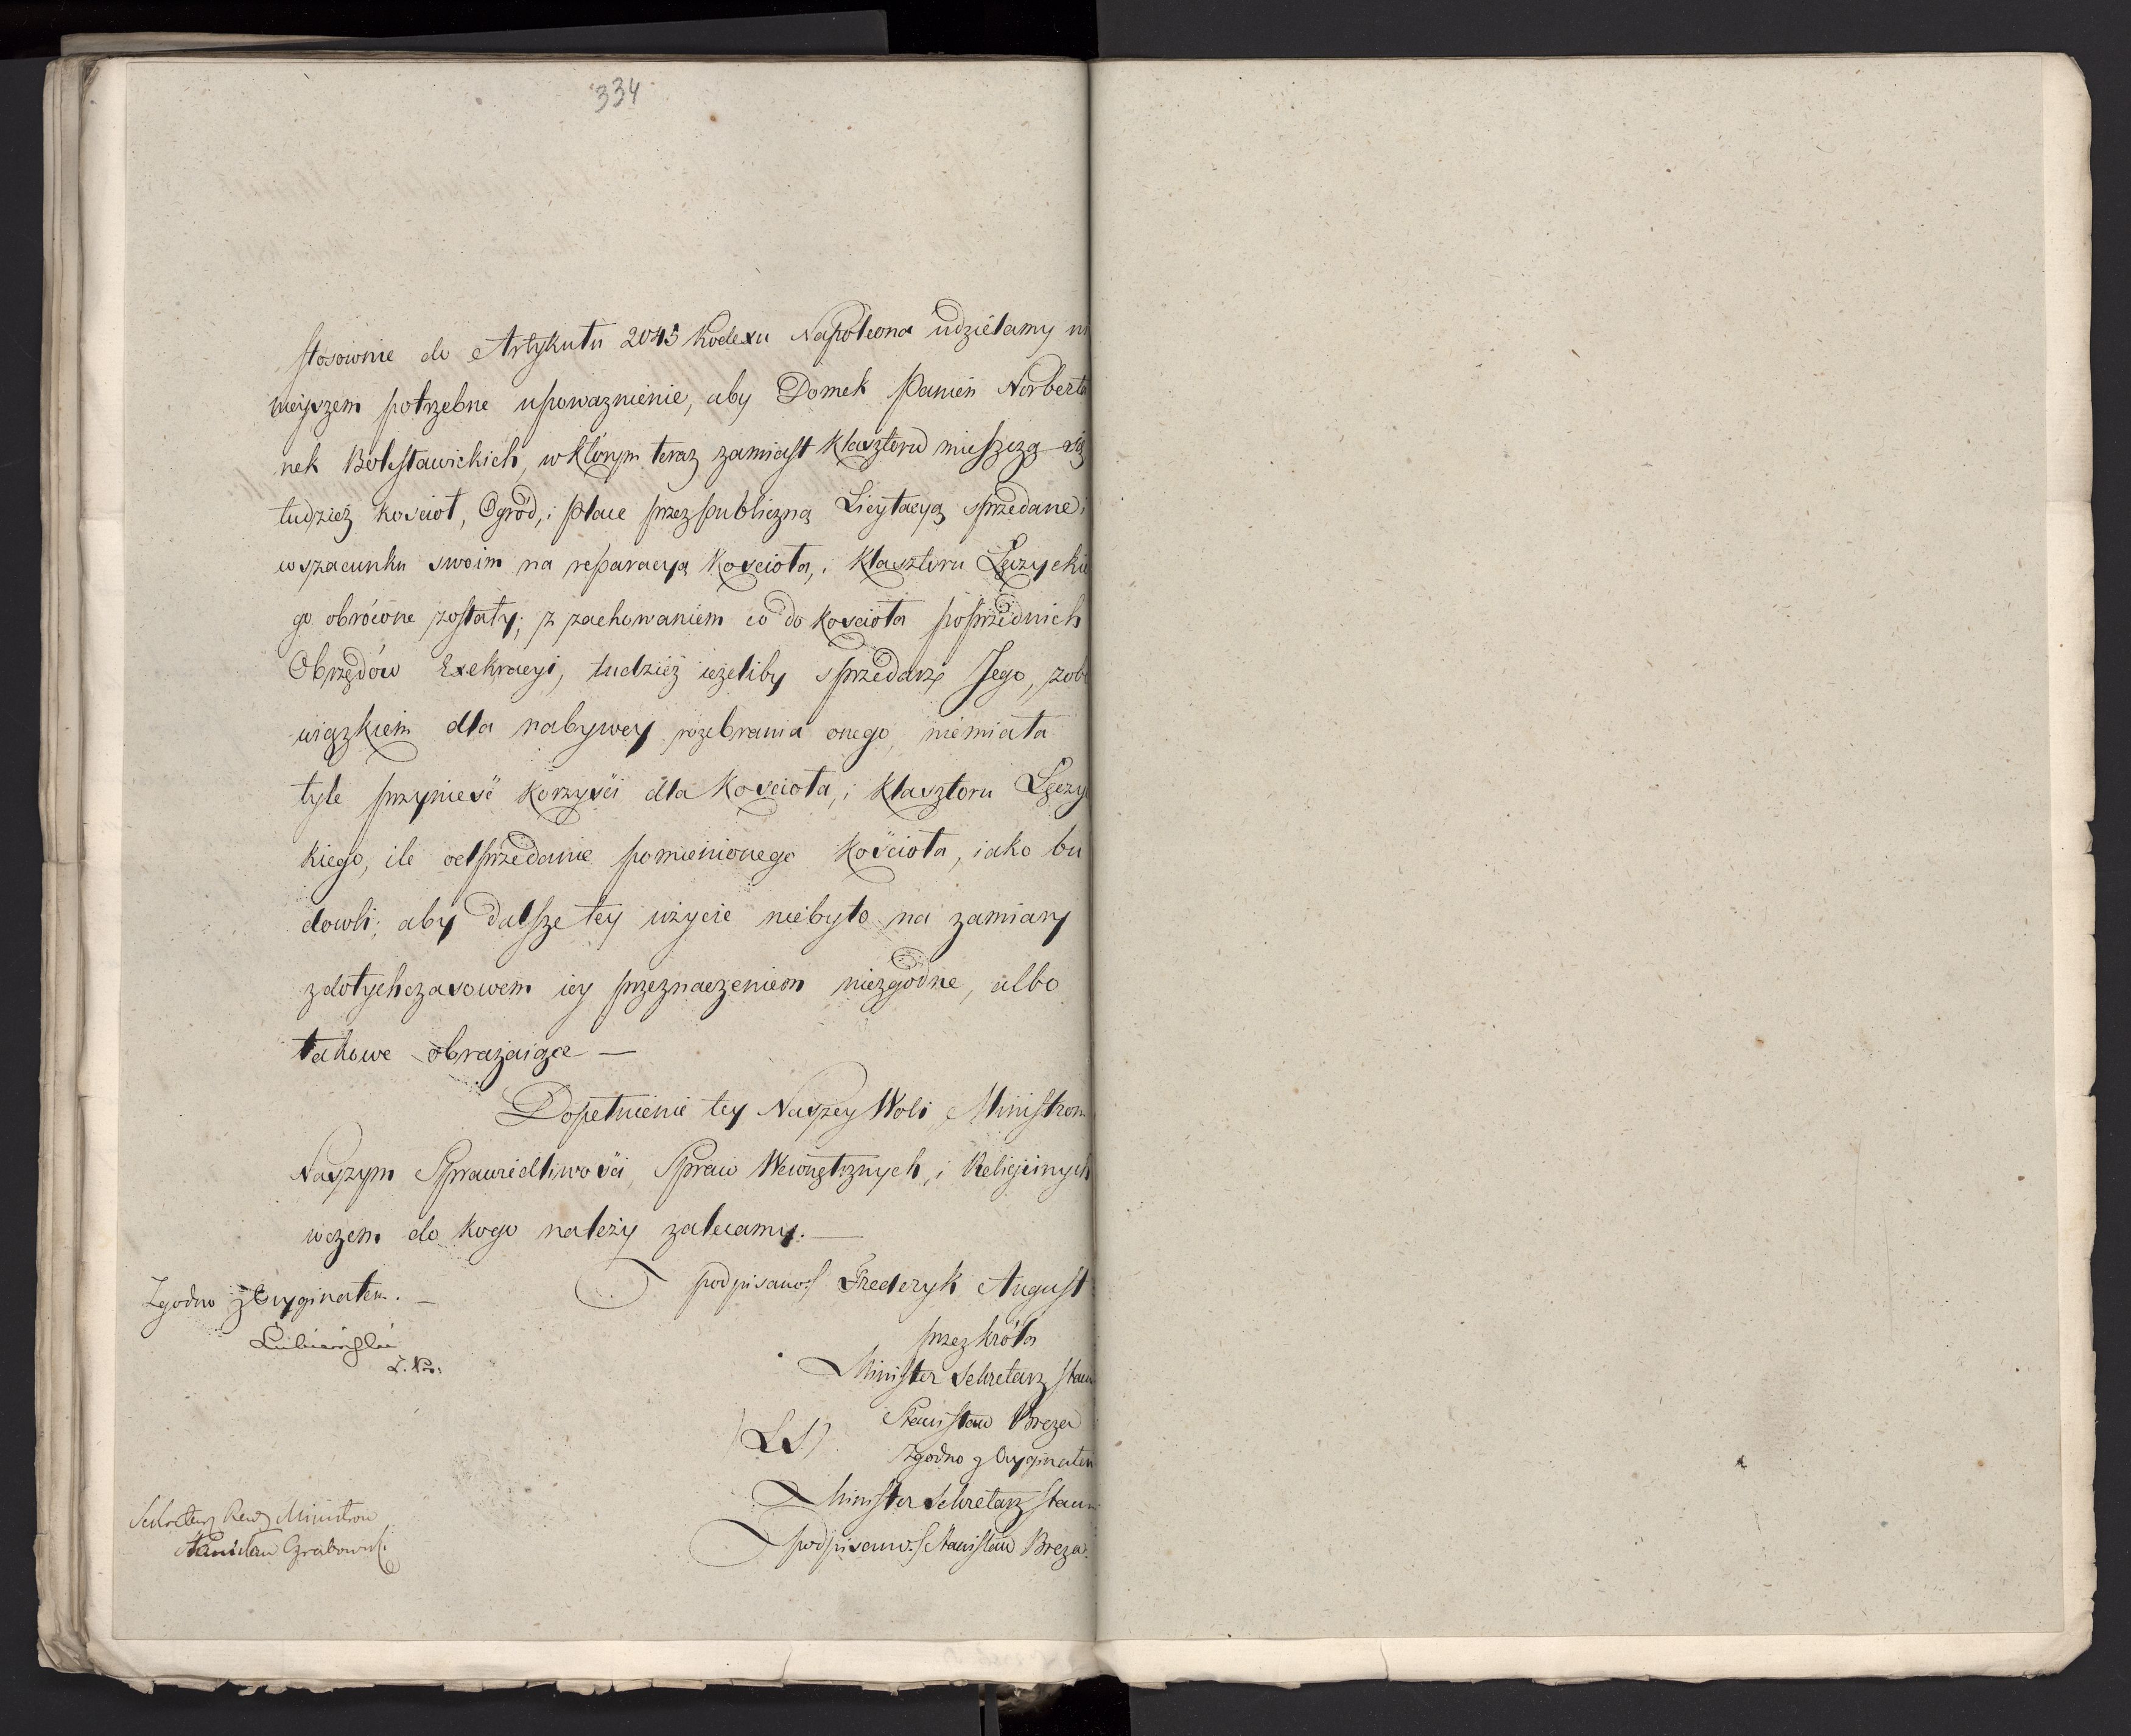 334
stosownie do Artykułu 2045 Kodexu Napoleona udzielamy ni
nieyszem potrzebne upoważnienie, aby Domek Panien Norberta
nek Bolesławickich, w którym teraz zamiast Klasztoru mieszczą się
tudzież kościoł, Ogród, i place przez publiczną Licytacyą sprzedane i
w szacunku swoim na reparacyą Kościoła, i Klasztoru Łęczyckie
go obrócone zostały; z zachowaniem co do kościoła poprzednich
Obrzędów Exekracyi, tudzież ieżeliby sprzedaż Jego, zobo
wiązkiem dla nabywcy rozebrania onego, niemiała
tyle przynieść korzyści dla Kościoła, i Klasztoru Łęczy
kiego, ile odsprzedanie pomienionego kościoła, iako bu
dowli; aby dalsze tey użycie niebyło na zamiary
z dotychczasowem iey przeznaczeniem niezgodne, albo
takowe obrażaiące —
Dopełnienie tey Naszey Woli, Ministrom
Naszym Sprawiedliwości, Spraw Wewnętrznych, i Religijnych
w czem do kogo należy zalecamy. —
podpisano/ Frederyk August
Zgodno z Oryginałem. —
przez króla
Łubieński
Minister Sekretarz Stanu
Stanisław Breza
(LS)
Zgodno z Oryginałem
Minister Sekretarz Stanu
Sekretarz Rady Ministrów
podpisano/ Stanisław Breza.
Stanisław Grabowski